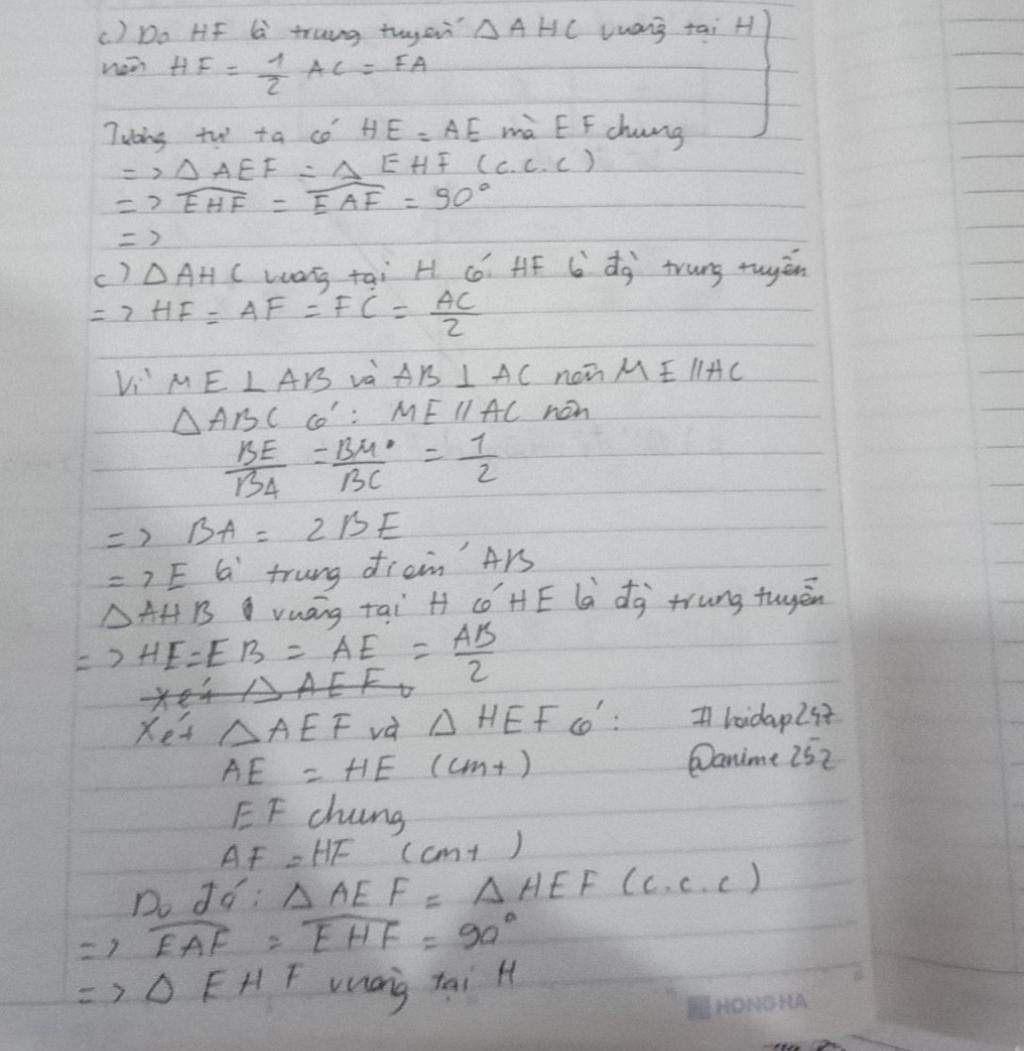 c) Do HF là trung tuyến △AHC vuông tại H
nên HF = 1/2 AC = FA
Tương tự ta có HE = AE mà EF chung
=> △AEF = △EHF (c.c.c)
=> EHF = EAF = 90°
=>
c) △AHC vuông tại H có HF là đg trung tuyến
=> HF = AF = FC = AC/2
Vì ME ⊥ AB và AB ⊥ AC nên ME // AC
△ABC có: ME // AC nên
BE/BA = BM/BC = 1/2
=> BA = 2BE
=> E là trung điểm AB
△AHB vuông tại H có HE là đg trung tuyến
=> HE = EB = AE = AB/2
Xét △AEF
Xét △AEF và △HEF có: # hoidap247
AE = HE (cmt) @anime252
EF chung
AF = HF (cmt)
Do đó: △AEF = △HEF (c.c.c)
=> EAF = EHF = 90°
=> △EHF vuông tại H
HONG HA